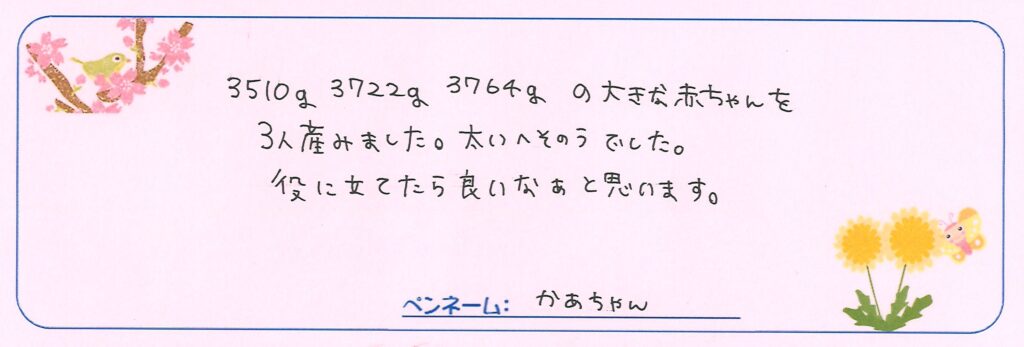 3510g 3722g 3764g の大きな赤ちゃんを
3人産みました。太いへそのうでした。
役に立てたら良いなぁと思います。
ペンネーム: かあちゃん